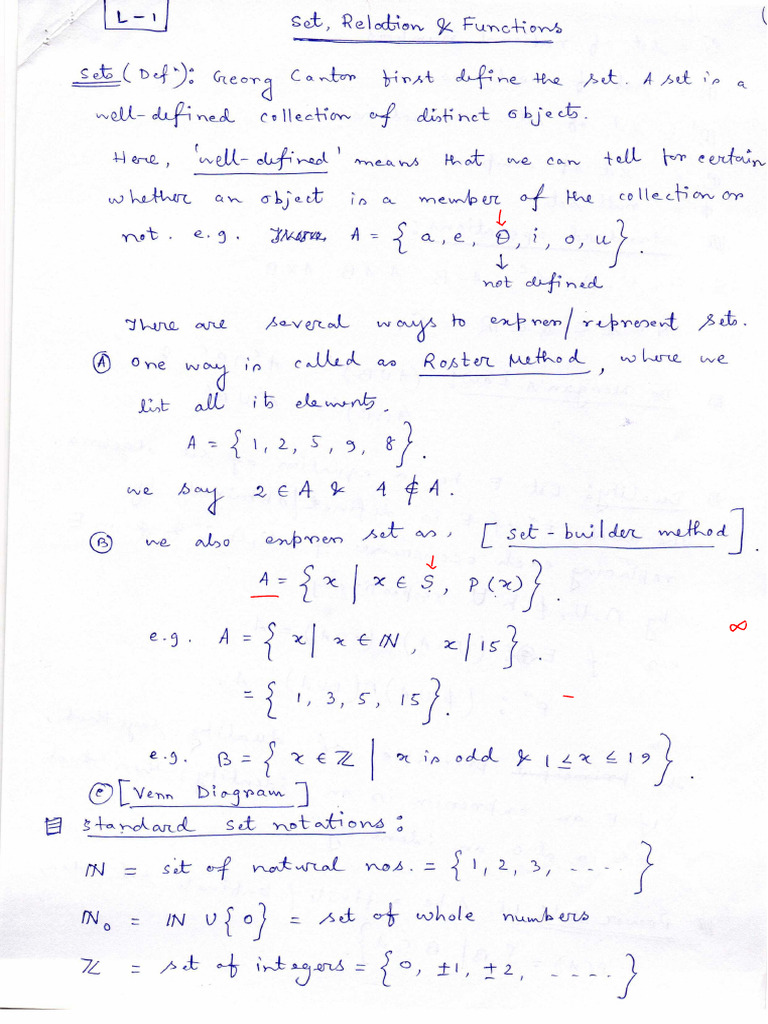 L-1
Set, Relation & Functions
Sets (Defⁿ): Georg Cantor first define the set. A set is a
well-defined collection of distinct objects.
Here, 'well-defined' means that we can tell for certain
whether an object is a member of the collection or
not. e.g. A = { a, e, Θ, i, o, u }.
↓
not defined
There are several ways to express/represent sets.
(A) One way is called as Roster Method, where we
list all its elements.
A = { 1, 2, 5, 9, 8 }.
we say 2 ∈ A & 4 ∉ A.
(B) we also express set as, [ set-builder method ].
A = { x | x ∈ S, P(x) }.
e.g. A = { x | x ∈ ℕ, x | 15 }.
∞
= { 1, 3, 5, 15 }.
e.g. B = { x ∈ ℤ | x is odd & 1 ≤ x ≤ 19 }.
(C) [Venn Diagram]
Standard set notations:
ℕ = set of natural nos. = { 1, 2, 3, ..... }
ℕ₀ = ℕ ∪ { 0 } = set of whole numbers
ℤ = set of integers = { 0, ±1, ±2, ..... }